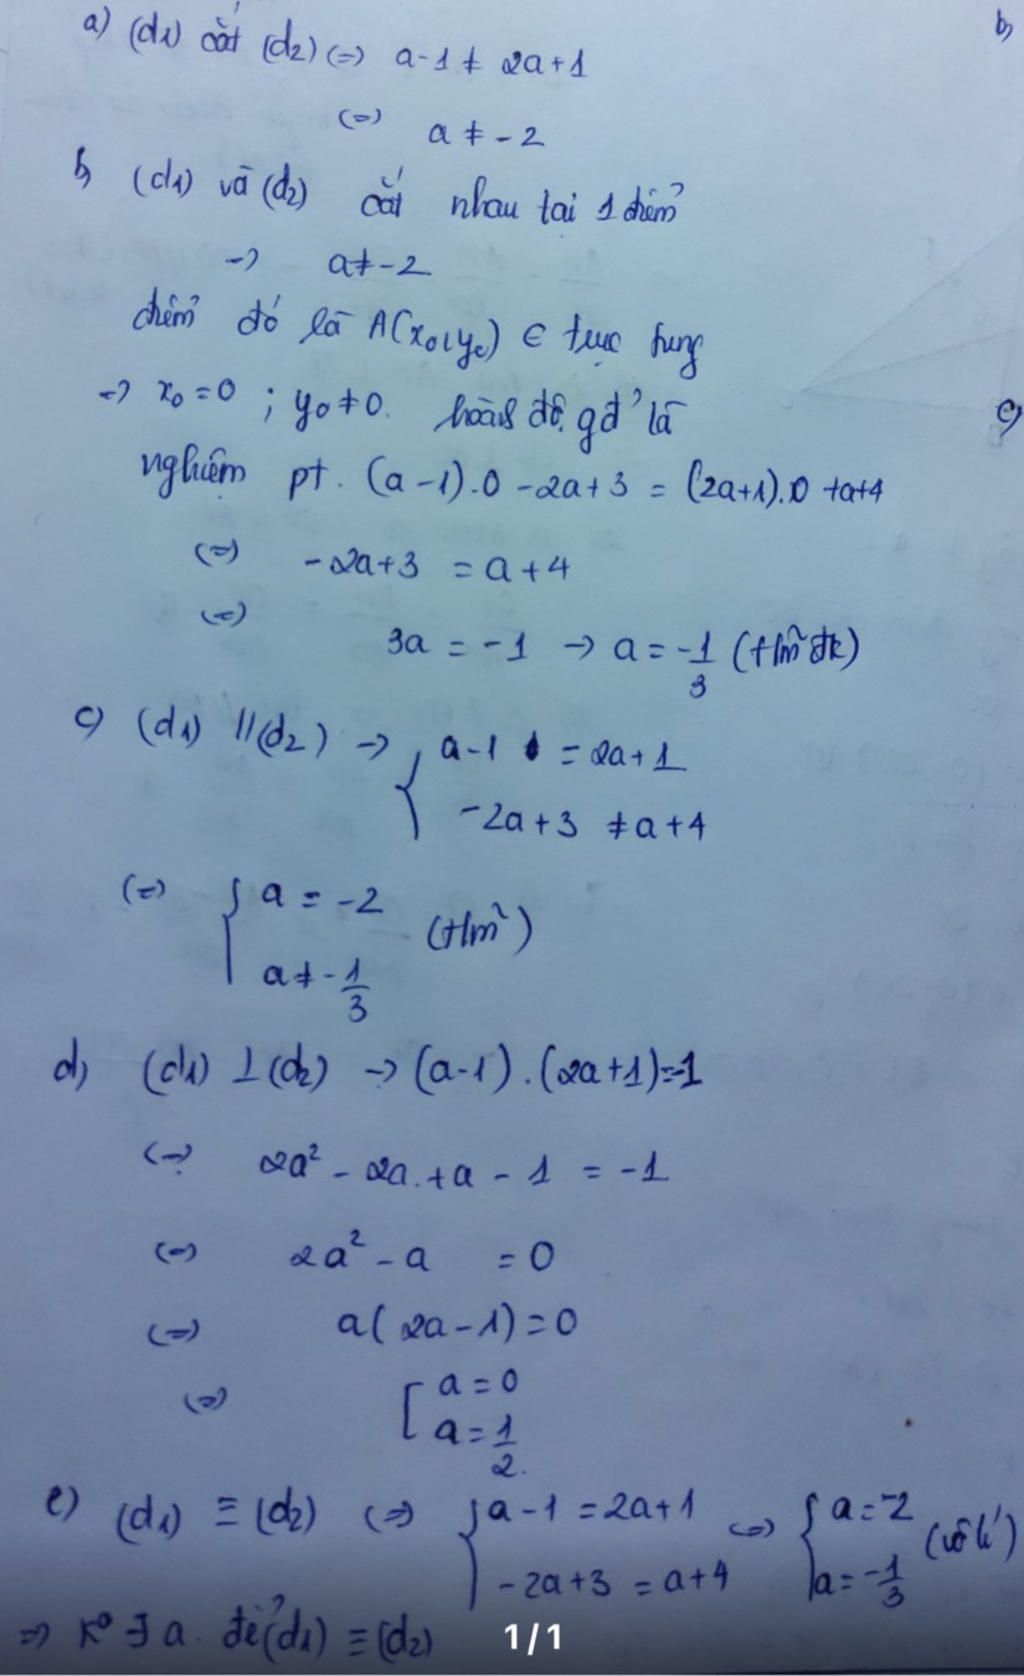 a) (d1) cắt (d2) (=) a-1 ≠ 2a+1
b)
(=) a ≠ -2
b) (d1) và (d2) cắt nhau tại 1 điểm
-> a ≠ -2
điểm đó là A(x0, y0) ∈ trục tung
=> x0 = 0 ; y0 ≠ 0. hoành độ gđ' là
nghiệm pt. (a-1).0 -2a+3 = (2a+1).0 +a+4
(=) -2a+3 = a+4
(=) 3a = -1 -> a = -1/3 (t/m đk)
c) (d1) // (d2) -> { a-1 = 2a+1
-2a+3 ≠ a+4
(=) { a = -2
a ≠ -1/3 (t/m)
d) (d1) ⊥ (d2) -> (a-1).(2a+1)=-1
(=) 2a² - 2a + a - 1 = -1
(=) 2a² - a = 0
(=) a(2a-1) = 0
(=) [ a = 0
a = 1/2.
e) (d1) ≡ (d2) (=) { a-1 = 2a+1 (=) { a = -2
-2a+3 = a+4 a = -1/3 (vô lí)
=> K° ∃ a. để (d1) ≡ (d2)
1/1